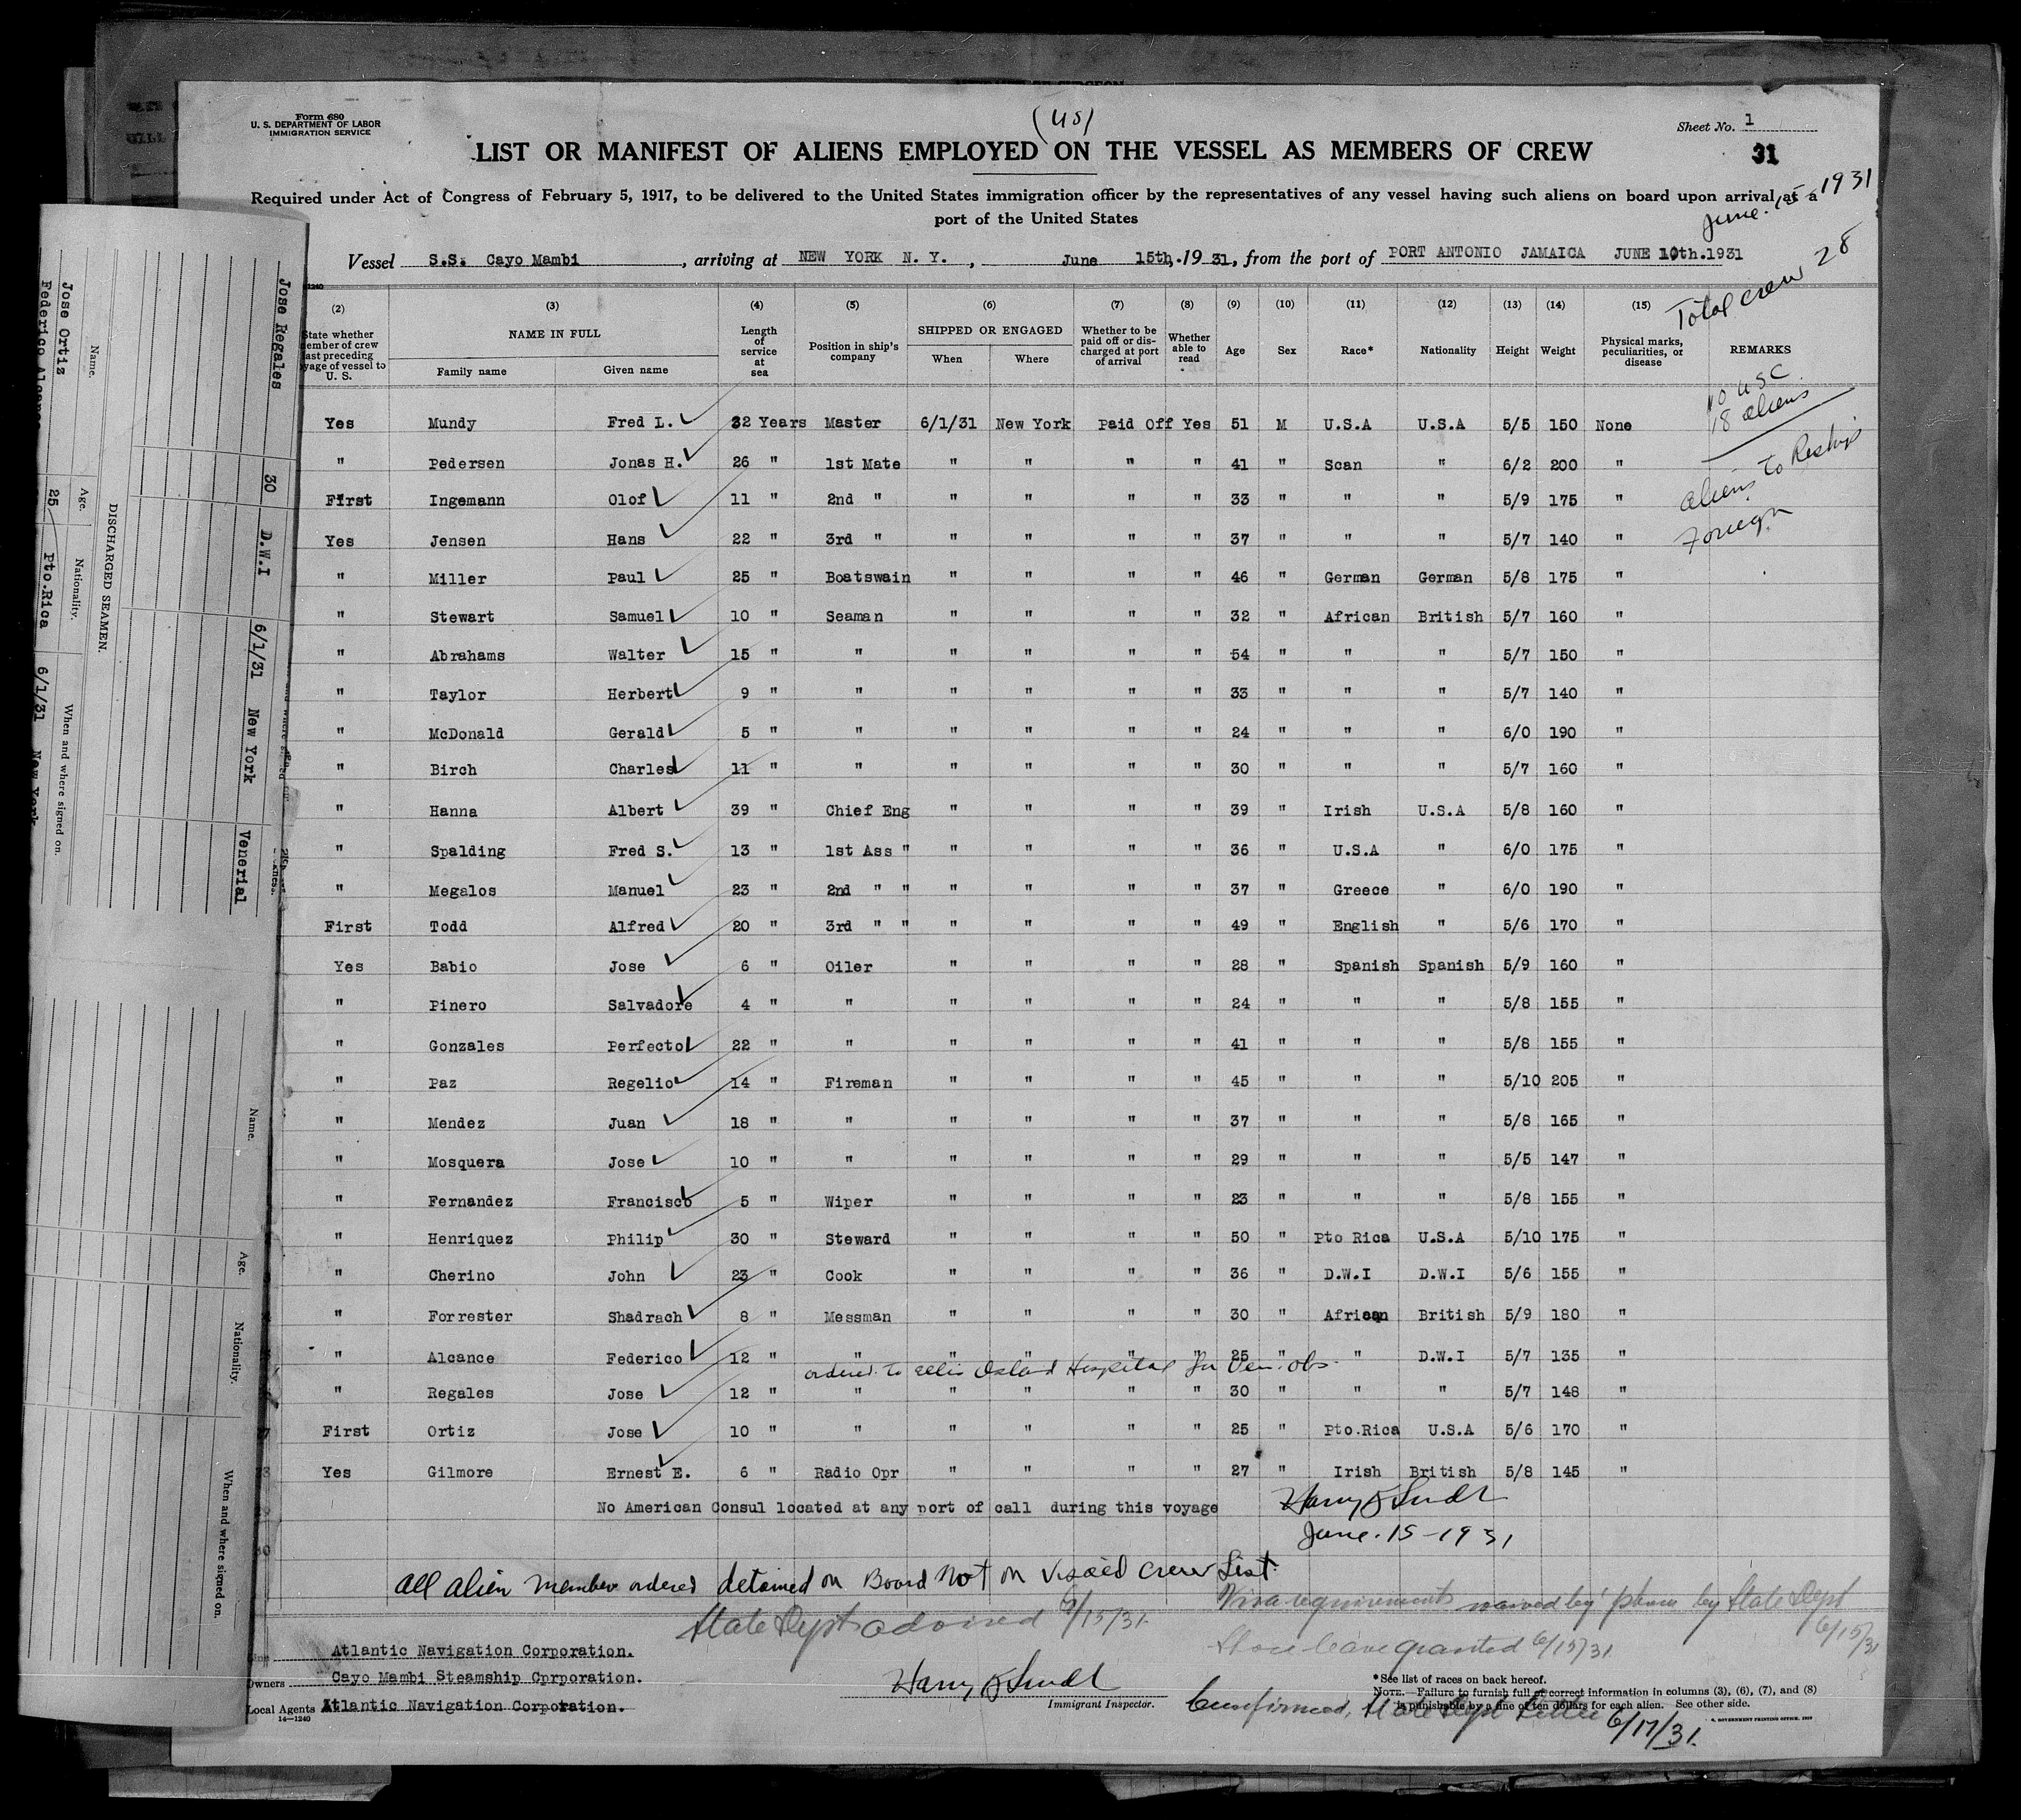 Form 680
U. S. DEPARTMENT OF LABOR
IMMIGRATION SERVICE
(US)
Sheet No. 1
31
LIST OR MANIFEST OF ALIENS EMPLOYED ON THE VESSEL AS MEMBERS OF CREW
Required under Act of Congress of February 5, 1917, to be delivered to the United States immigration officer by the representatives of any vessel having such aliens on board upon arrival at a
port of the United States
June. 15 1931
Vessel S.S. Cayo Mambi, arriving at NEW YORK N. Y., June 15th, 1931, from the port of PORT ANTONIO JAMAICA JUNE 10th.1931
Total crew 28
(2) (3) (4) (5) (6) (7) (8) (9) (10) (11) (12) (13) (14) (15)
State whether member of crew last preceding voyage of vessel to U. S.
NAME IN FULL
Family name Given name
Length of service at sea
Position in ship's company
SHIPPED OR ENGAGED
When Where
Whether to be paid off or discharged at port of arrival
Whether able to read
Age Sex Race* Nationality Height Weight
Physical marks, peculiarities, or disease
REMARKS
10 USC
18 aliens
aliens to Reship
Foreign
Yes Mundy Fred L. 32 Years Master 6/1/31 New York Paid Off Yes 51 M U.S.A U.S.A 5/5 150 None
" Pedersen Jonas H. 26 " 1st Mate " " " " 41 " Scan " 6/2 200 "
First Ingemann Olof 11 " 2nd " " " " " 33 " " " 5/9 175 "
Yes Jensen Hans 22 " 3rd " " " " " 37 " " " 5/7 140 "
" Miller Paul 25 " Boatswain " " " " 46 " German German 5/8 175 "
" Stewart Samuel 10 " Seaman " " " " 32 " African British 5/7 160 "
" Abrahams Walter 15 " " " " " " 54 " " " 5/7 150 "
" Taylor Herbert 9 " " " " " " 33 " " " 5/7 140 "
" McDonald Gerald 5 " " " " " " 24 " " " 6/0 190 "
" Birch Charles 11 " " " " " " 30 " " " 5/7 160 "
" Hanna Albert 39 " Chief Eng " " " " 39 " Irish U.S.A 5/8 160 "
" Spalding Fred S. 13 " 1st Ass " " " " " 36 " U.S.A " 6/0 175 "
" Megalos Manuel 23 " 2nd " " " " " " 37 " Greece " 6/0 190 "
First Todd Alfred 20 " 3rd " " " " " " 49 " English " 5/6 170 "
Yes Babio Jose 6 " Oiler " " " " 28 " Spanish Spanish 5/9 160 "
" Pinero Salvadore 4 " " " " " " 24 " " " 5/8 155 "
" Gonzales Perfecto 22 " " " " " " 41 " " " 5/8 155 "
" Paz Regelio 14 " Fireman " " " " 45 " " " 5/10 205 "
" Mendez Juan 18 " " " " " " 37 " " " 5/8 165 "
" Mosquera Jose 10 " " " " " " 29 " " " 5/5 147 "
" Fernandez Francisco 5 " Wiper " " " " 23 " " " 5/8 155 "
" Henriquez Philip 30 " Steward " " " " 50 " Pto Rica U.S.A 5/10 175 "
" Cherino John 23 " Cook " " " " 36 " D.W.I D.W.I 5/6 155 "
" Forrester Shadrach 8 " Messman " " " " 30 " African British 5/9 180 "
" Alcance Federico 12 " " " " " " 25 " " D.W.I 5/7 135 "
ordered to Ellis Island Hospital for Ven. obs.
" Regales Jose 12 " " " " " " 30 " " " 5/7 148 "
First Ortiz Jose 10 " " " " " " 25 " Pto.Rica U.S.A 5/6 170 "
Yes Gilmore Ernest E. 6 " Radio Opr " " " " 27 " Irish British 5/8 145 "
No American Consul located at any port of call during this voyage
June. 15 - 1931
All alien member ordered detained on Board not on visaed crew List.
State Dept advised 6/15/31.
Visa requirements waived by phone by State Dept 6/15/31
Shore leave granted 6/15/31
Atlantic Navigation Corporation.
Owners Cayo Mambi Steamship Cprporation.
Local Agents Atlantic Navigation Corporation.
14—1240
Immigrant Inspector.
*See list of races on back hereof.
NOTE.—Failure to furnish full or correct information in columns (3), (6), (7), and (8)
is punishable by a fine of ten dollars for each alien. See other side.
U. S. GOVERNMENT PRINTING OFFICE
Confirmed, State Dept Letter 6/17/31.
Jose Regales 30 D.W.I 6/1/31 New York Venerial
DISCHARGED SEAMEN.
Name. Age. Nationality. When and where signed on.
Jose Ortiz 25 Pto.Rica 6/1/31 New York
Federico Alcance
Name. Age. Nationality. When and where signed on.